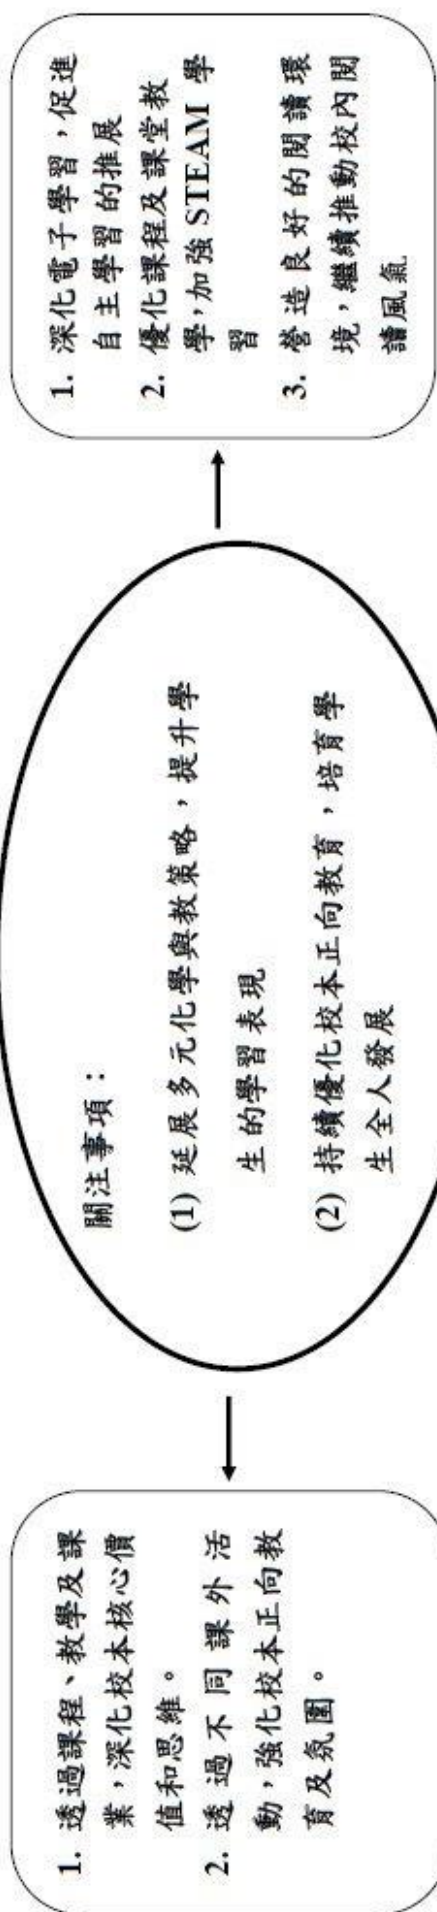 1. 透過課程、教學及課
業，深化校本核心價
值和思維。
2. 透過不同課外活
動，強化校本正向教
育及氛圍。
關注事項：
(1) 延展多元化學與教策略，提升學
生的學習表現
(2) 持續優化校本正向教育，培育學
生全人發展
1. 深化電子學習，促進
自主學習的推展
2. 優化課程及課堂教
學，加強 STEAM 學
習
3. 營造良好的閱讀環
境，繼續推動校內閱
讀風氣